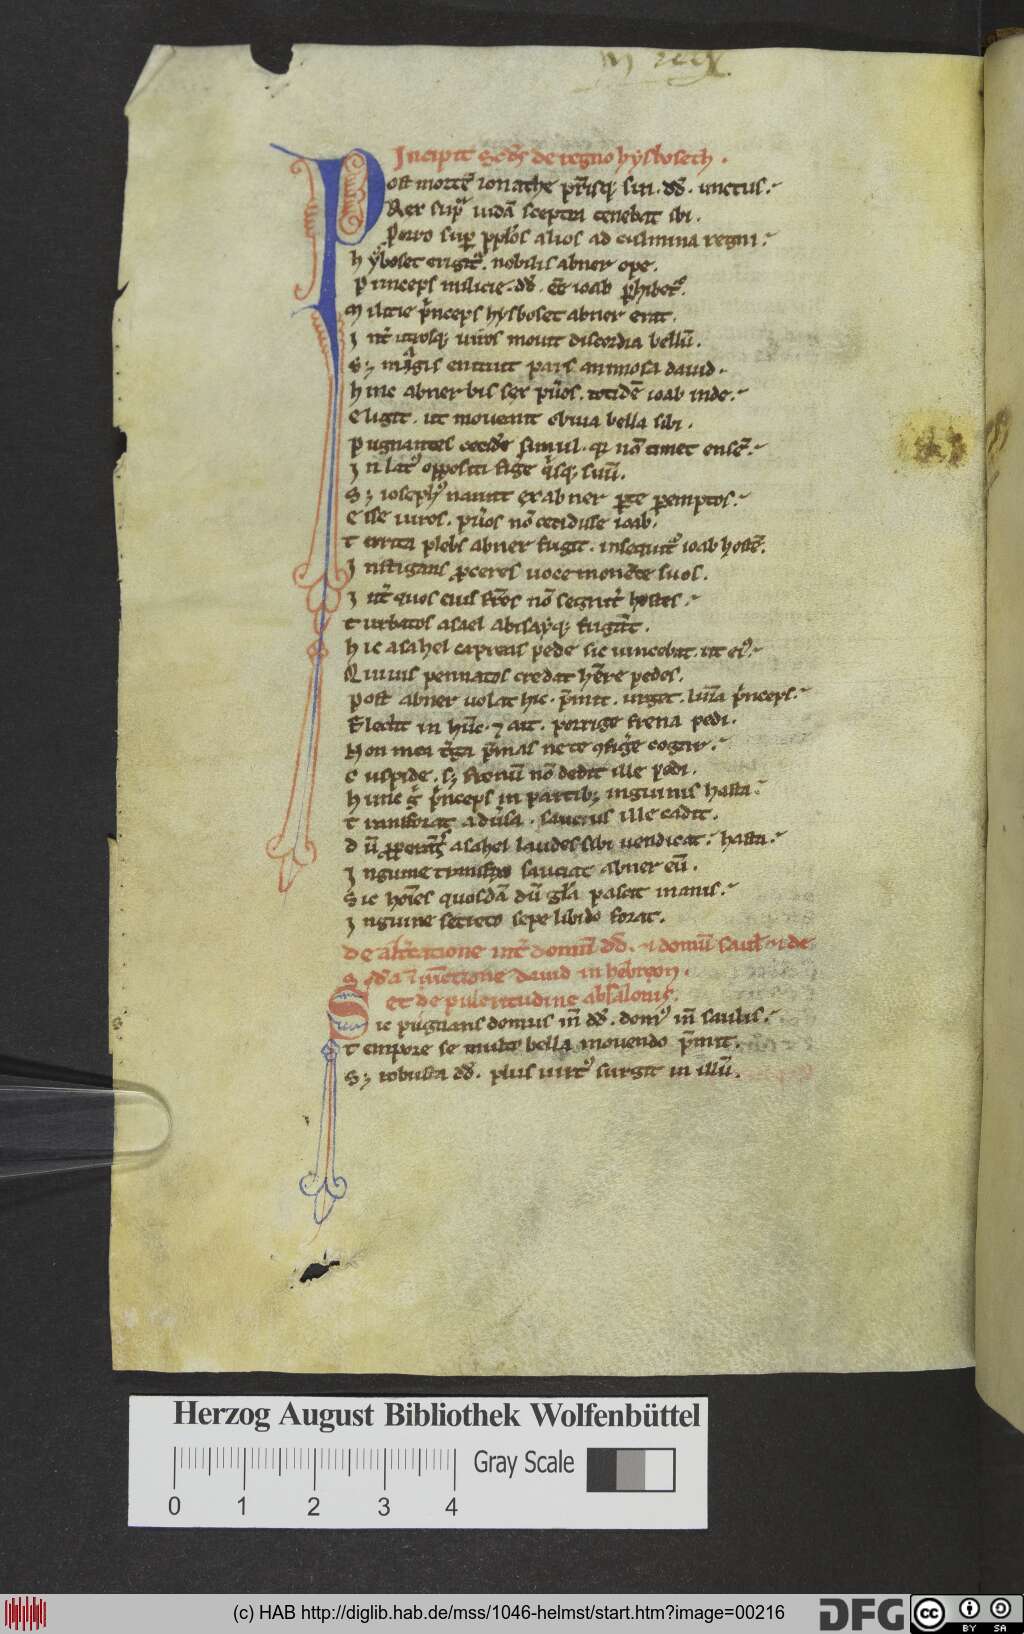 Incipit Scđs de regno hysbosech .
Post mortē ionathe pr̄isq; sui . dđ . unctus .
Rex sup̄ iudā sceptra tenebat sibi .
Porro sup̄ pplōs alios ad culmina regni .
hysboset erigit² . nobilis abner ope .
Princeps milicie . dđ . eē ioab p̱hibet² .
Militie p̄nceps hysboset abner erat .
Int̄ utrosq; uiros mouit discordia bellū .
S; magis enituit pars animosa dauid .
hinc abner bis sex pūos . totidē ioab inde .
Eligit . ut moueant obuia bella sibi .
Pugnantes cecidēr simul . qi nō timet ensē .
In lat² oppositi figē q̄sq; suū .
S; ioseph² narrat ex abner parte peremptos .
Esse uiros . pūos nō cecidisse ioab .
Territa plebs abner fugit . insequit² ioab hostē .
Instigans proceres uoce monente suos .
Int̄ quos eius fr̄es nō segnit̄ hostes .
Turbatos asael abisayq; fugāt .
hic asahel capreas pede sic uincebat . ut ei² .
Quiuis pennatos credat hēre pedes .
Post abner uolat hic . p̄mit . urget . p̄nceps .
Flectit in hūc . ⁊ ait . porrige frena pedi .
Non mea t̄ga p̄mas ne te ɔfigē cogar .
Cuspide . s; frenū nō dedit ille pedi .
hunc ḡ p̄nceps in partib; inguinis hasta .
Transforat aduersa . saucius ille cadit .
Dū asahel laudes sibi uendicat . hasta .
Inguine transfixo sauciat abner eū .
Sic hoīes quosdā dū gl̄a pascit inanis .
Inguine secreto sepe libido forat .
De alt̄catione int̄ domū dđ . ⁊ domū saul ⁊ de
scđa iūctione dauid in hebron .
et de pulcritudine absalonis .
Sic pugnans domus int̄ dđ . dom² int̄ saulis .
Tempore se multo bella mouendo p̄mit .
S; robusta dđ . plus uirt² surgit in illū .
Herzog August Bibliothek Wolfenbüttel
Gray Scale
0 1 2 3 4
(c) HAB http://diglib.hab.de/mss/1046-helmst/start.htm?image=00216
DFG
cc
BY SA